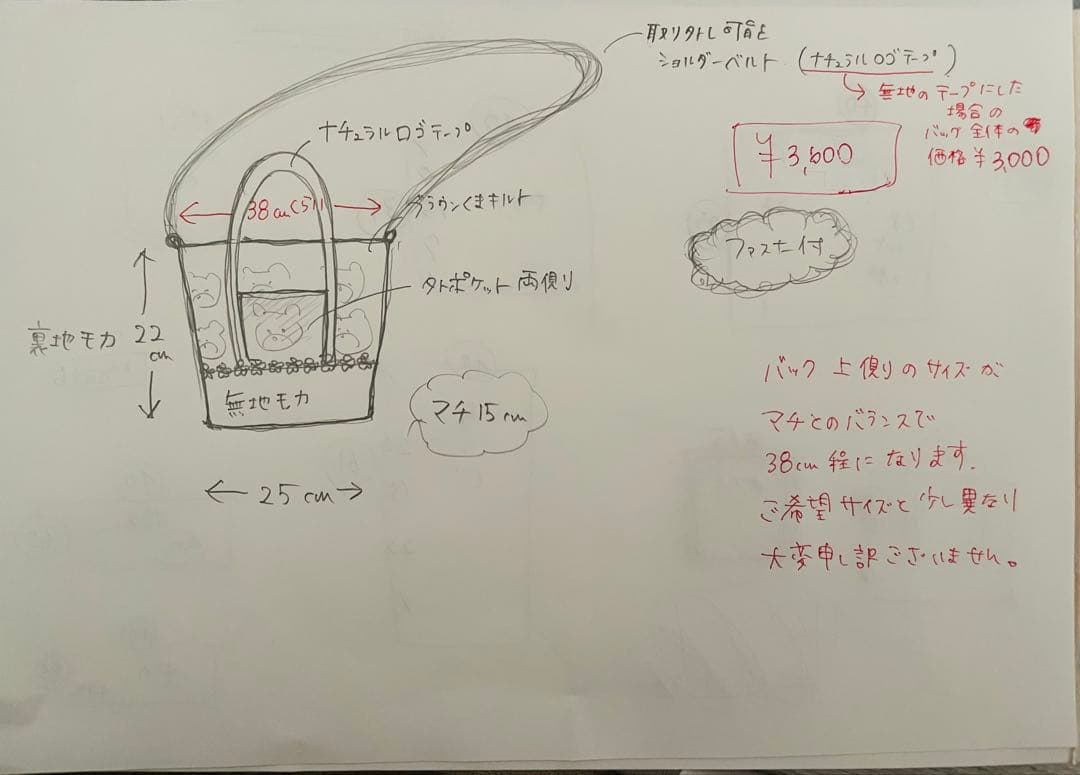 取り外し可能
ショルダーベルト (ナチュラルロゴテープ)
→ 無地のテープにした
場合の
バック全体の
価格¥3,000
¥3,600
ファスナー付
ナチュラルロゴテープ
38cmくらい
ブラウンくまキルト
外ポケット両側
裏地モカ
22
cm
無地モカ
マチ15cm
25cm
バック上側のサイズが
マチとのバランスで
38cm程になります.
ご希望サイズと少し異なり
大変申し訳ございません。